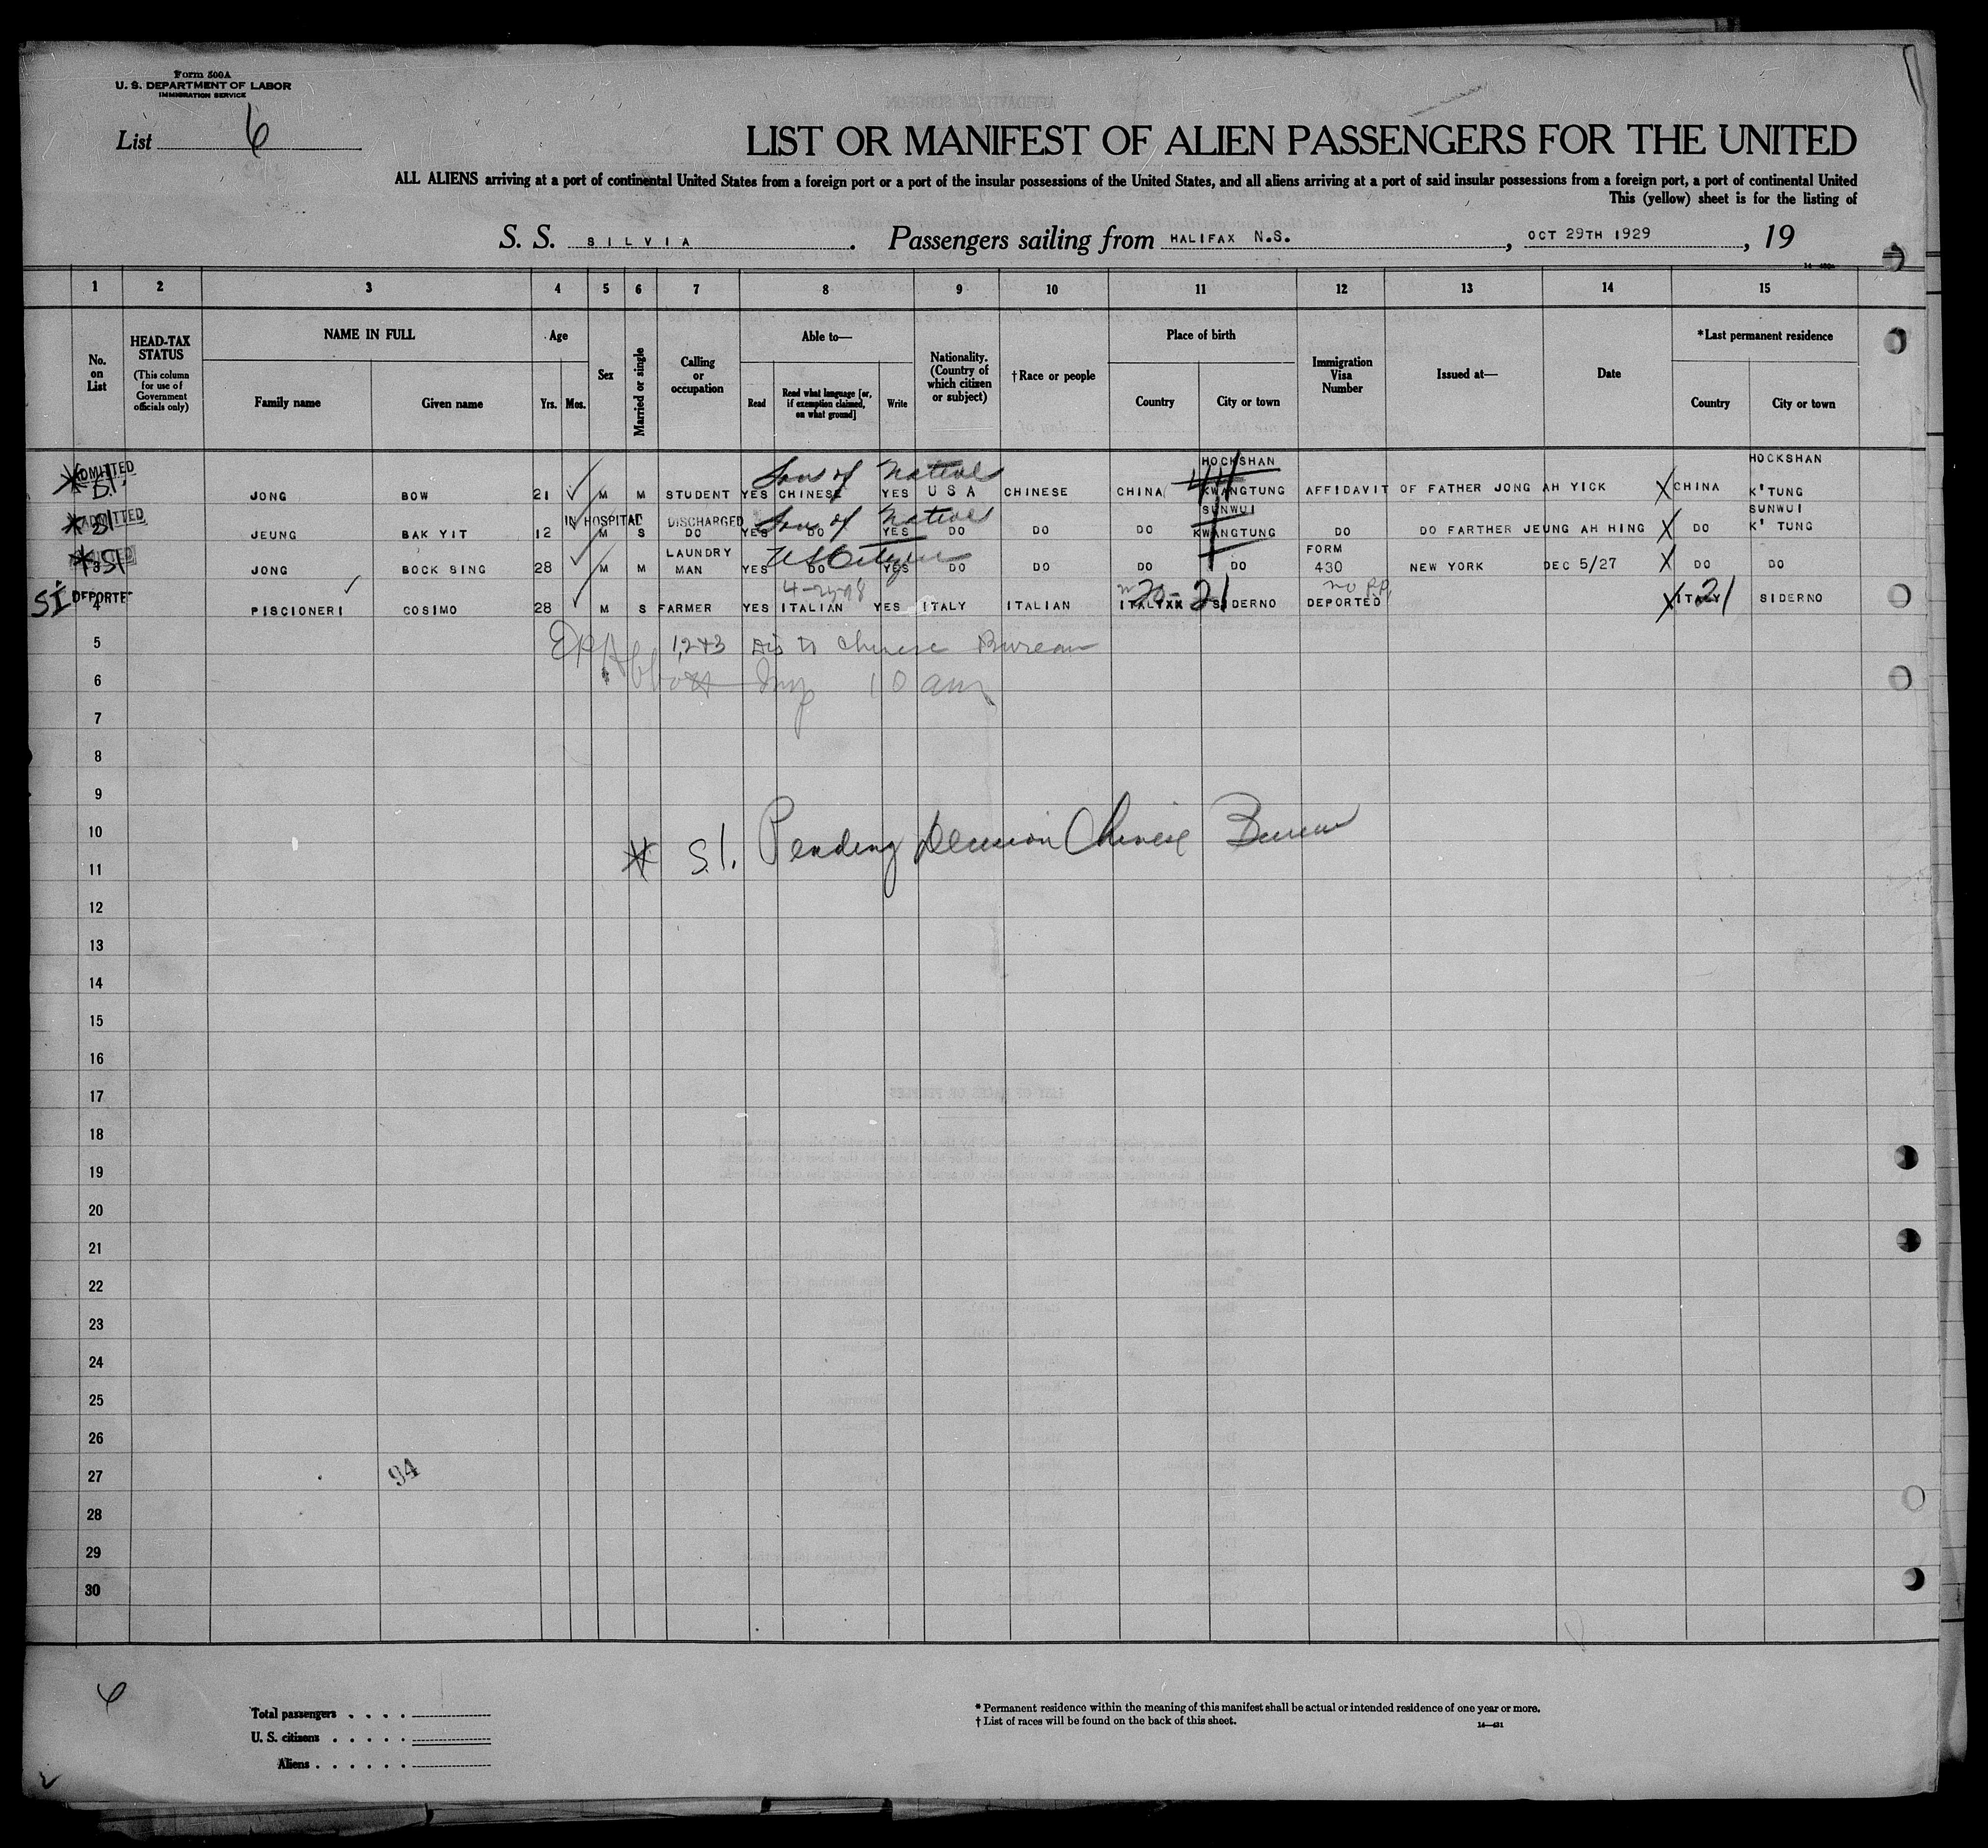 Form 500A
U. S. DEPARTMENT OF LABOR
IMMIGRATION SERVICE
List 6
LIST OR MANIFEST OF ALIEN PASSENGERS FOR THE UNITED
ALL ALIENS arriving at a port of continental United States from a foreign port or a port of the insular possessions of the United States, and all aliens arriving at a port of said insular possessions from a foreign port, a port of continental United
This (yellow) sheet is for the listing of
S. S. SILVIA. Passengers sailing from HALIFAX N.S., OCT 29TH 1929, 19
1 2 3 4 5 6 7 8 9 10 11 12 13 14 15
No. on List
HEAD-TAX STATUS (This column for use of Government officials only)
NAME IN FULL
Family name Given name
Age
Yrs. Mos.
Sex
Married or single
Calling or occupation
Able to—
Read Read what language [or, if exemption claimed, on what ground] Write
Nationality. (Country of which citizen or subject)
†Race or people
Place of birth
Country City or town
Immigration Visa Number
Issued at—
Date
*Last permanent residence
Country City or town
ADMITTED Son of Native HOCKSHAN HOCKSHAN
* SI JONG BOW 21 ✓ M M STUDENT YES CHINESE YES U S A CHINESE CHINA KWANGTUNG AFFIDAVIT OF FATHER JONG AH YICK X CHINA K'TUNG
ADMITTED IN HOSPITAL DISCHARGED Son of Native SUNWUI SUNWUI
* SI JEUNG BAK YIT 12 M S DO YES DO YES DO DO DO KWANGTUNG DO DO FARTHER JEUNG AH HING X DO K' TUNG
LAUNDRY US Citizen FORM
* SI 3 JONG BOCK SING 28 ✓ M M MAN YES DO YES DO DO DO DO 430 NEW YORK DEC 5/27 X DO DO
SI DEPORTED 20-21 no P.P. 21
4 PISCIONERI ✓ COSIMO 28 ✓ M S FARMER YES ITALIAN YES ITALY ITALIAN ITALYXX SIDERNO DEPORTED X ITALY SIDERNO
5 1,2+3 Dis to Chinese Bureau
6 Abbott Insp 10 am
7
8
9
10
* S.I. Pending Decision Chinese Bureau
11
12
13
14
15
16
17
18
19
20
21
22
23
24
25
26
27 94
28
29
30
6
Total passengers . . . .
U. S. citizens . . . . .
Aliens . . . . . .
* Permanent residence within the meaning of this manifest shall be actual or intended residence of one year or more.
† List of races will be found on the back of this sheet.
14—431